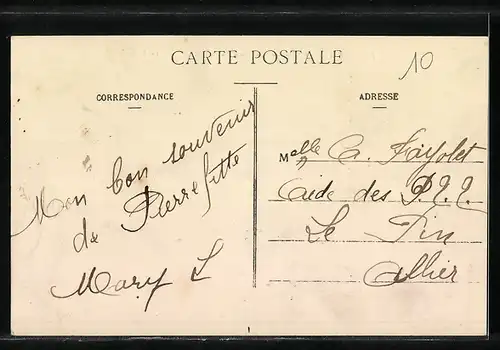 CARTE POSTALE
10
CORRESPONDANCE
ADRESSE
Mon bon souvenir
de Pierrefitte
Mary L
Melle A. Fayolet
Aide des P.T.T.
Le Pin
Allier